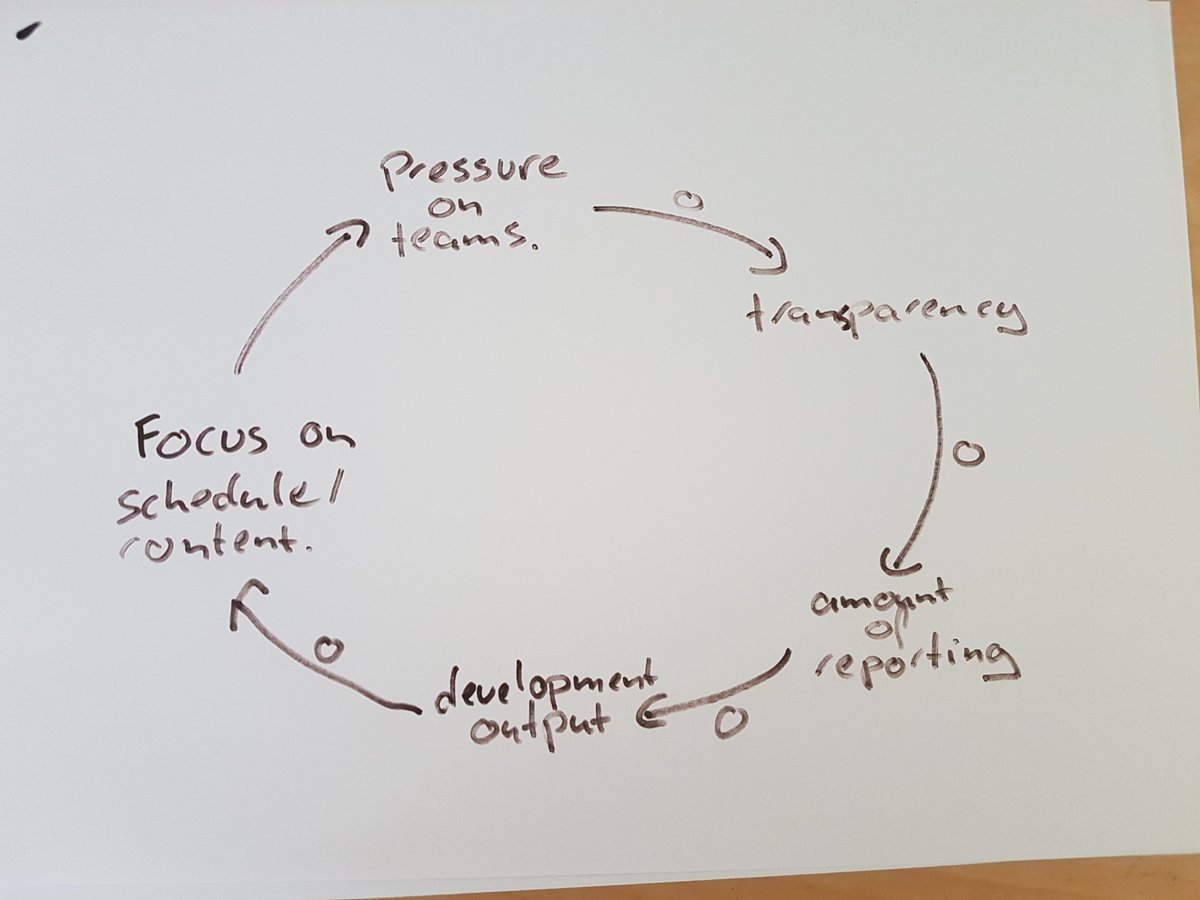 Pressure
on
teams.
O
transparency
O
amount
of
reporting
O
development
output
O
Focus on
schedule/
content.